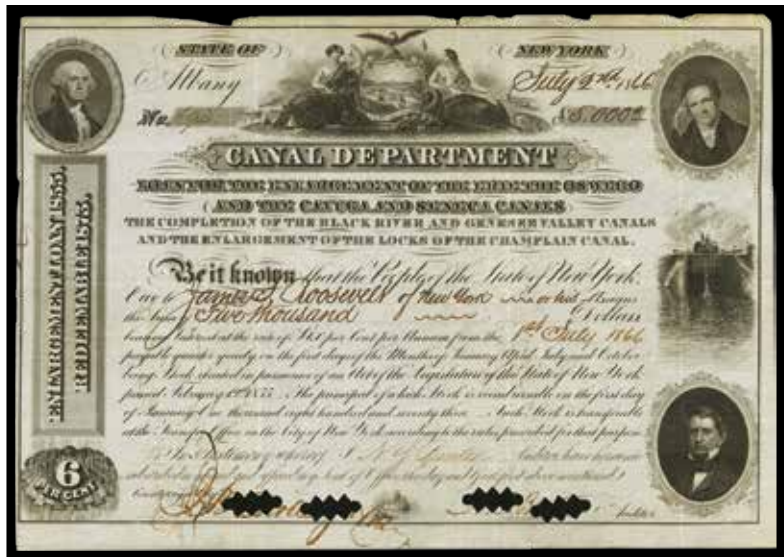 STATE OF NEW YORK
Albany July 2nd 1866
No. $5.000
CANAL DEPARTMENT
LOAN FOR THE ENLARGEMENT OF THE ERIE THE OSWEGO
AND THE CAYUGA AND SENECA CANALS
THE COMPLETION OF THE BLACK RIVER AND GENESEE VALLEY CANALS
AND THE ENLARGEMENT OF THE LOCKS OF THE CHAMPLAIN CANAL.
Be it known that the People of the State of New York
Owe to James Roosevelt of New York or his Assigns
the Sum Five thousand Dollars
bearing Interest at the rate of Six per Cent per Annum from the 1st July 1866
payable quarter yearly on the first day of the Months of January April July and October
being Stock created in pursuance of an Act of the Legislation of the State of New York
passed February The principal of which Stock is reimbursable on the first day
of January One thousand eight hundred and seventy three Such Stock is transferable
at the Transfer office in the City of New York according to the rules prescribed for that purpose
In Testimony whereof I
ENLARGEMENT LOAN 1855.
REDEEMABLE 1873.
6
PER CENT